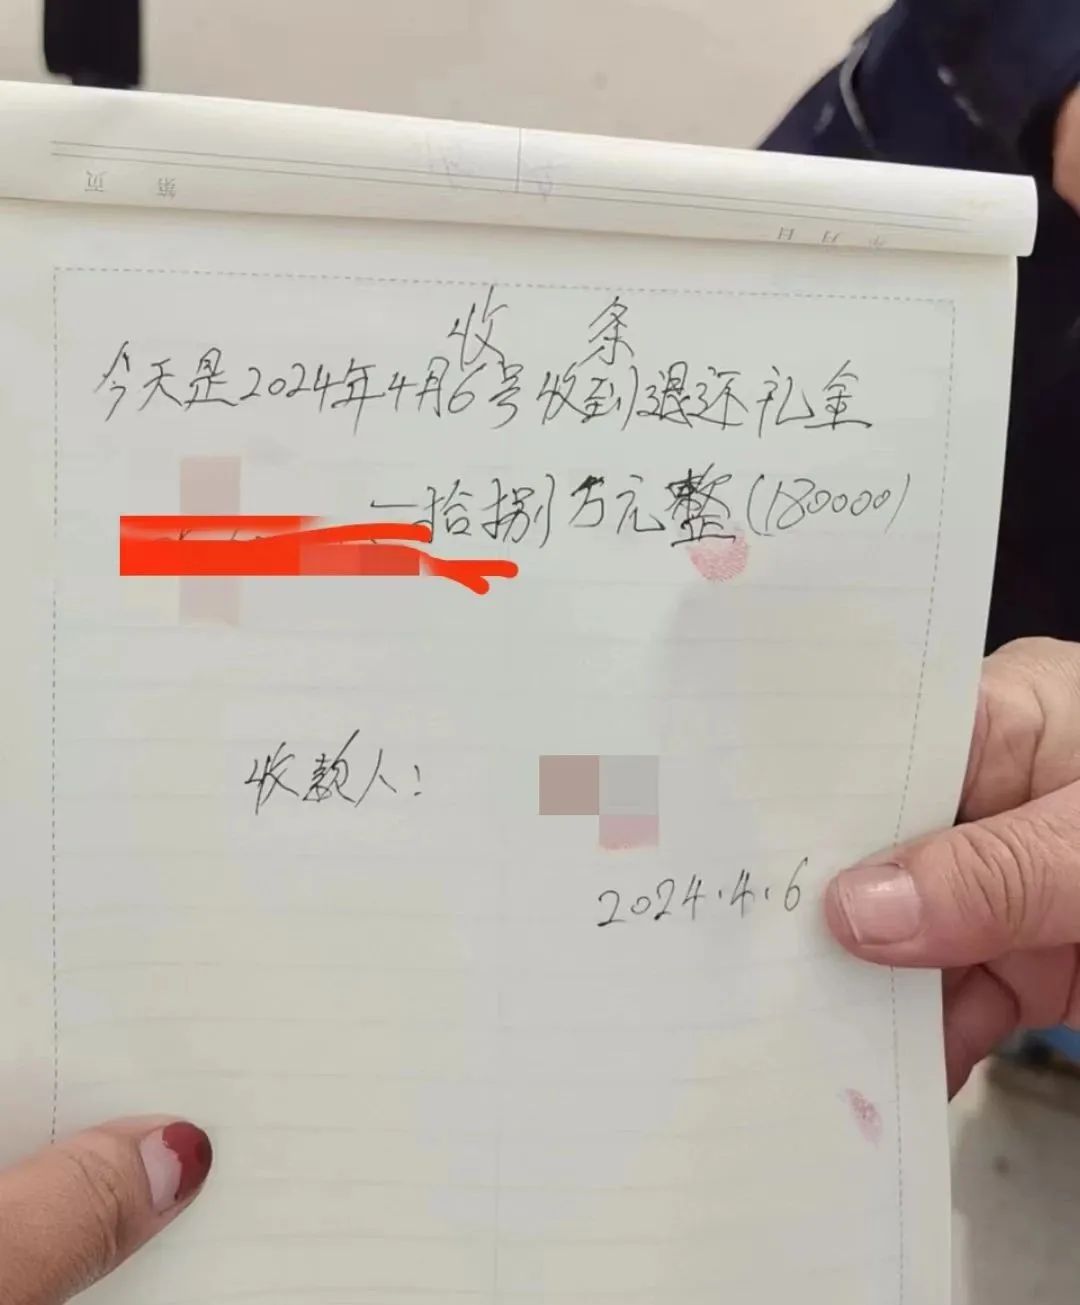 第 页
年 月 日
收 条
今天是2024年4月6号收到退还礼金
一拾捌万元整(180000)
收款人:
2024.4.6